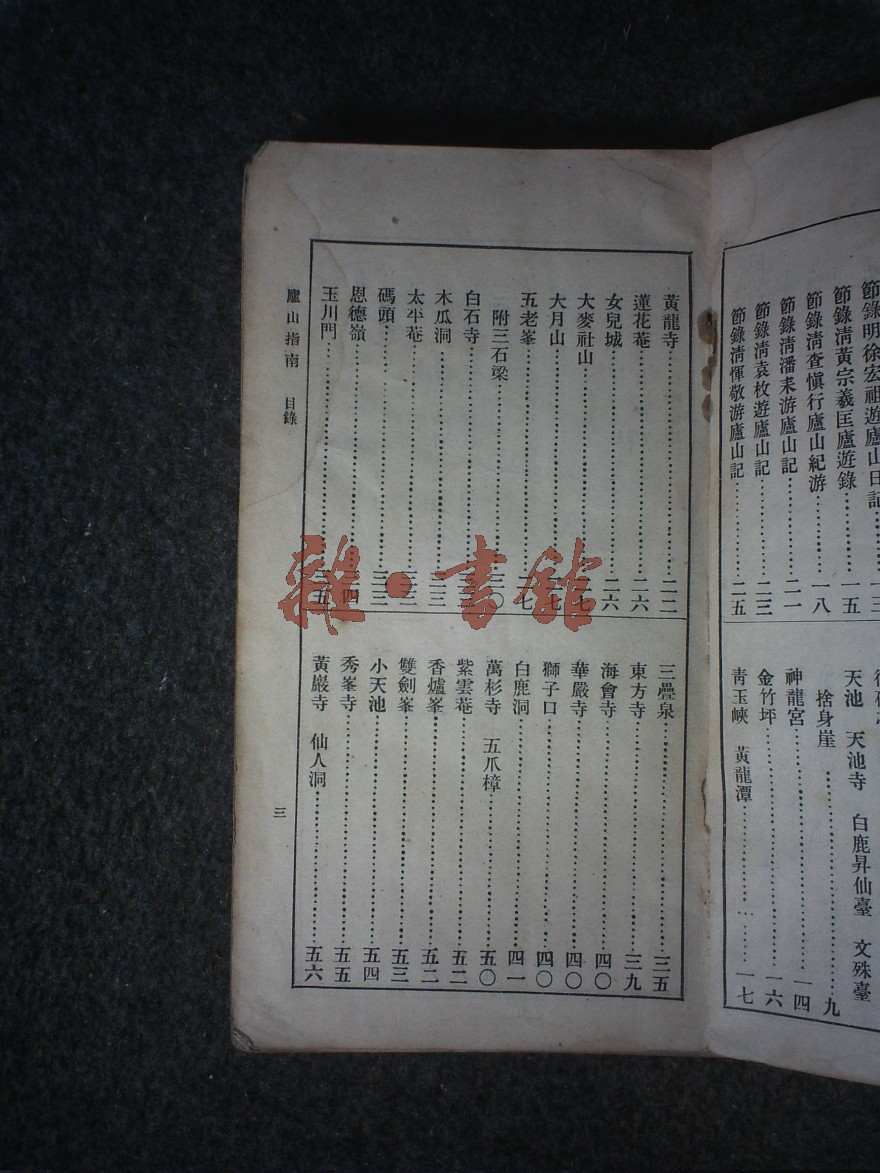 節錄明徐宏祖遊廬山日記
節錄淸黃宗羲匡廬遊錄……一五
節錄淸查愼行廬山紀游……一八
節錄淸潘耒游廬山記……二一
節錄淸袁枚遊廬山記……二三
節錄淸惲敬游廬山記……二五
天池　天池寺　白鹿昇仙臺　文殊臺
捨身崖……九
神龍宮……一四
金竹坪……一六
靑玉峽　黃龍潭……一七
黃龍寺……二二
蓮花菴……二六
女兒城……二六
大麥社山
大月山
五老峯……二七
附三石梁
白石寺
木瓜洞……三三
太平菴
碼頭……三三
恩德嶺
玉川門
三疊泉……三五
東方寺……三九
海會寺……四〇
華嚴寺……四〇
獅子口……四〇
白鹿洞……四一
萬杉寺　五爪樟……五〇
紫雲菴……五二
香爐峯……五二
雙劍峯……五三
小天池……五四
秀峯寺……五五
黃巖寺　仙人洞……五六
廬山指南　目錄
三
雜·書館